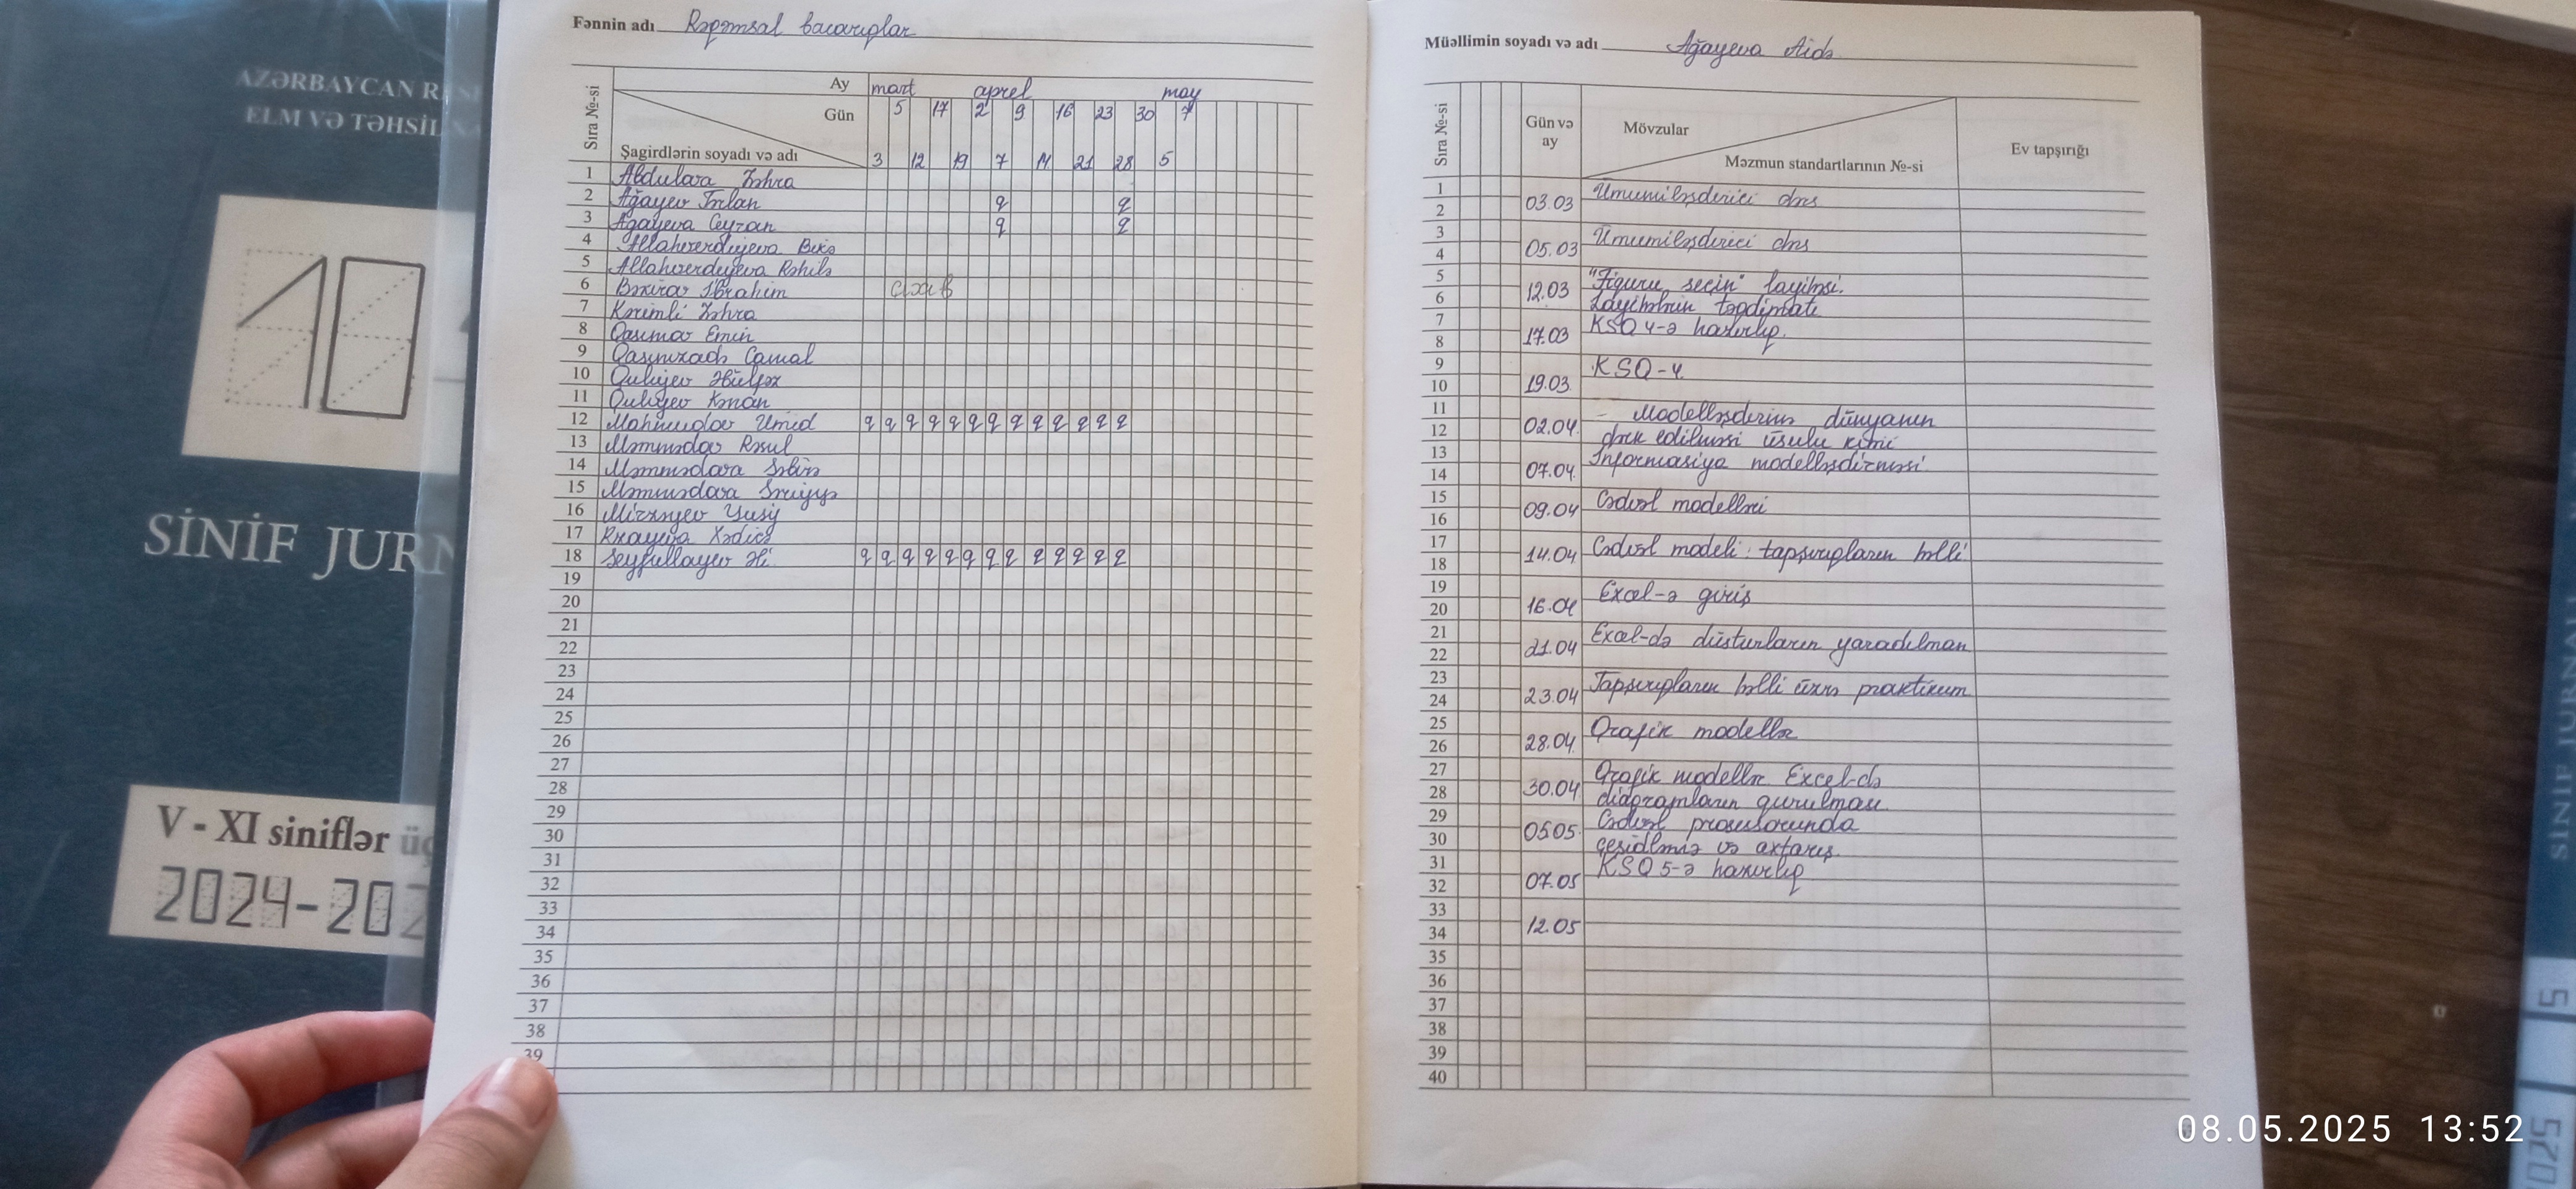 AZƏRBAYCAN RES
ELM VƏ TƏHSİL NA
SİNİF JURN
V - XI siniflər üç
2024-202
Fənnin adı Rəqəmsal bacarıqlar
Sıra №-si
Ay mart aprel may
Gün 5 17 2 9 16 23 30 7
Şagirdlərin soyadı və adı 3 12 19 7 14 21 28 5
1 Abdulova Zəhra
2 Ağayev Tərlan q q
3 Ağayeva Ceyran q q
4 Allahverdiyeva
5 Allahverdiyeva Rəhilə
6 Bəkirov İbrahim
7 Kərimli Zəhra
8 Qasımov Emin
9 Qasımzadə Camal
10 Quliyev
11 Quliyev Kənan
12 Mahmudov Ümid q q q q q q q q q q q q q
13 Məmmədov Rəsul
14 Məmmədova
15 Məmmədova
16 Mirzəyev Yusif
17 Rzayeva Xədicə
18 Seyfullayev Əli q q q q q q q q q q q q q
19
20
21
22
23
24
25
26
27
28
29
30
31
32
33
34
35
36
37
38
39
Müəllimin soyadı və adı Ağayeva Aidə
Sıra №-si
Gün və ay
Mövzular
Məzmun standartlarının №-si
Ev tapşırığı
1
2 03.03 Ümumiləşdirici dərs
3
4 05.03 Ümumiləşdirici dərs
5 "Fiquru seçin" layihəsi.
6 12.03 Layihənin təqdimatı
7 KSQ 4-ə hazırlıq.
8 17.03
9 KSQ-4
10 19.03
11 - Modelləşdirmə dünyanın
12 02.04 dərk edilməsi üsulu kimi
13 İnformasiya modelləşdirməsi
14 07.04
15 Cədvəl modelləri
16 09.04
17 Cədvəl modeli: tapşırıqların həlli
18 14.04
19 Excel-ə giriş
20 16.04
21 Excel-də düsturların yaradılması
22 21.04
23 Tapşırıqların həlli üzrə praktikum
24 23.04
25 Qrafik modellər
26 28.04
27 Qrafik modellər. Excel-də
28 30.04 diaqramların qurulması
29 Cədvəl prosessorunda
30 05.05 çeşidləmə və axtarış.
31 KSQ 5-ə hazırlıq
32 07.05
33
34 12.05
35
36
37
38
39
40
08.05.2025 13:52